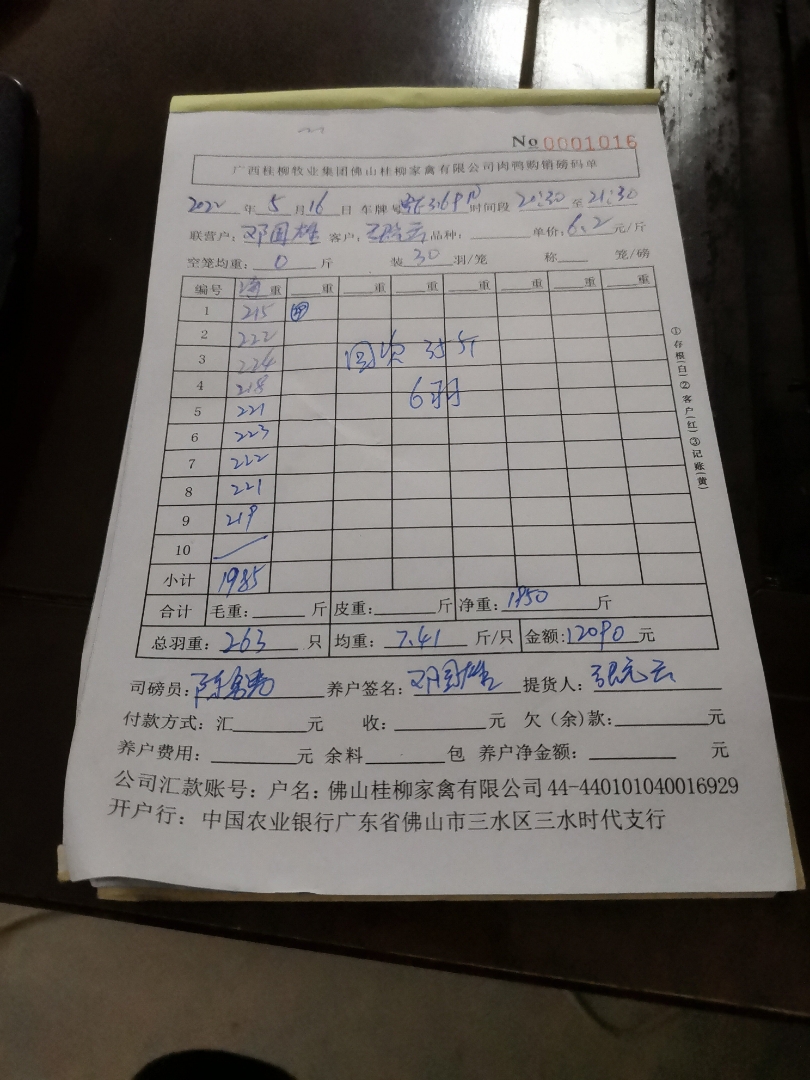 No 0001016
广西桂柳牧业集团佛山桂柳家禽有限公司肉鸭购销磅码单
2022 年 5 月 16 日 车牌号 时间段 20:30 至 21:30
联营户: 邓国雄 客户: 品种: 单价: 6.2 元/斤
空笼均重: 0 斤 装 30 羽/笼 称 笼/磅
编号 重 重 重 重 重 重 重 重
1 215
2 222
3 224
4 218
5 221
6 223
7 222
8 221
9 219
10
小计 1985
次 35斤
6羽
合计 毛重: 斤 皮重: 斤 净重: 1950 斤
总羽重: 263 只 均重: 7.41 斤/只 金额: 12090 元
司磅员: 养户签名: 邓国雄 提货人:
付款方式: 汇 元 收: 元 欠(余)款: 元
养户费用: 元 余料 包 养户净金额: 元
公司汇款账号: 户名: 佛山桂柳家禽有限公司 44-440101040016929
开户行: 中国农业银行广东省佛山市三水区三水时代支行
①存根(白)②客户(红)③记账(黄)